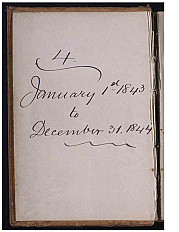 4
January 1st 1843
to
December 31. 1844